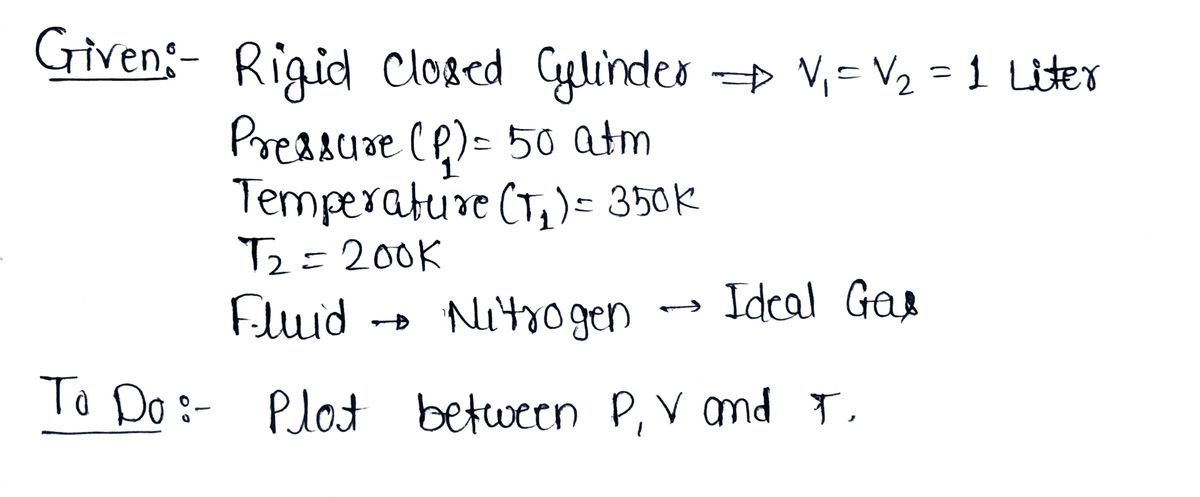 Given:- Rigid Closed Cylinder ⇒ V₁ = V₂ = 1 Liter
Pressure (P₁) = 50 atm
Temperature (T₁) = 350K
T₂ = 200K
Fluid → Nitrogen → Ideal Gas
To Do:- Plot between P, V and T.